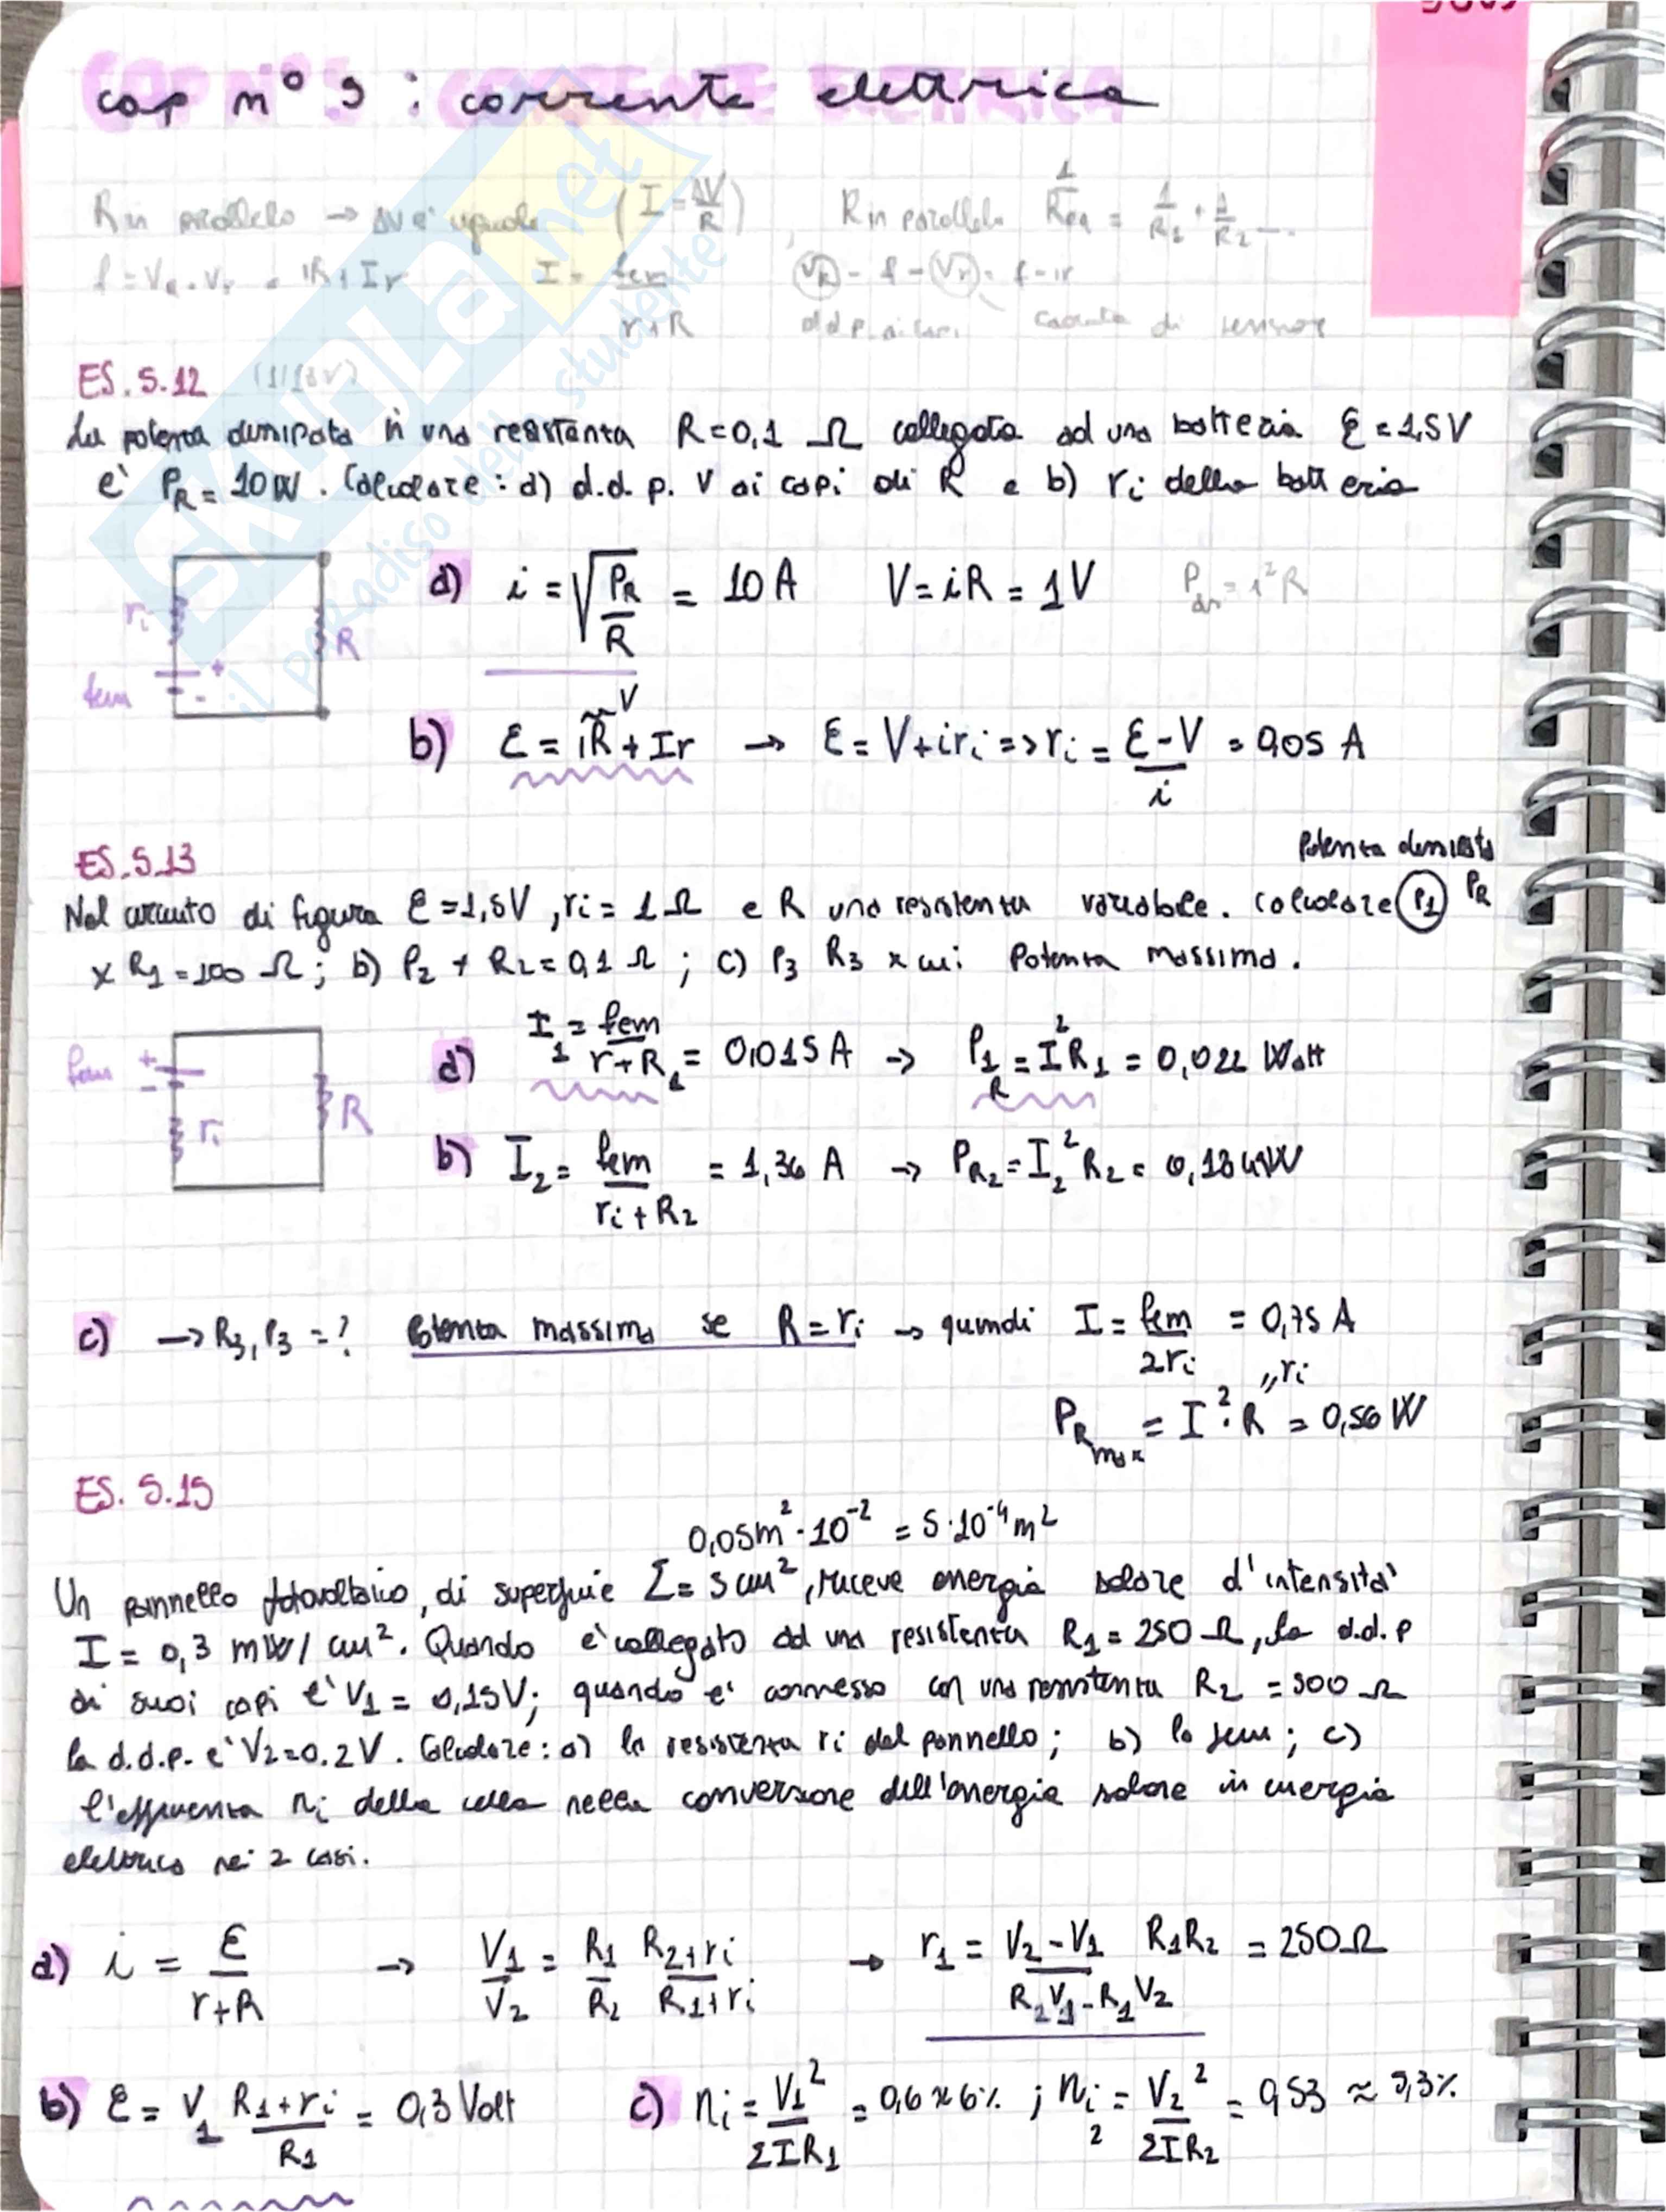 cap n° 5 : corrente elettrica
R in parallelo → ΔV è uguale ( I = ΔV/R ) , R in parallelo 1/Req = 1/R1 + 1/R2 ...
f = VR + Vr = IR + Ir I = fem/(r+R) VR = f - Vr = f - Ir
d.d.p. ai capi caduta di tensione
ES. 5.12
La potenza dissipata in una resistenza R = 0,1 Ω collegata ad una batteria ℰ = 1,5 V
è PR = 10W. Calcolare: a) d.d.p. V ai capi di R e b) ri della batteria
a) i = √(PR/R) = 10 A V = iR = 1V Pdis = i² R
ri R
fem + -
V
b) ℰ = iR + Ir → ℰ = V + iri => ri = (ℰ-V)/i = 0,05 A
ES. 5.13
Potenza dissipata
Nel circuito di figura ℰ = 1,5V, ri = 1 Ω e R una resistenza variabile. Calcolare P1 PR
x R1 = 100 Ω; b) P2 x R2 = 0,1 Ω; c) P3 R3 x cui Potenza massima.
a) I1 = fem/(r+R1) = 0,015 A → P1R = I² R1 = 0,022 Watt
fem + - ri R
b) I2 = fem/(ri+R2) = 1,36 A → PR2 = I2² R2 = 0,184W
c) → R3, P3 = ? Potenza massima se R = ri → quindi I = fem/2ri = 0,75 A
" ri
PRmax = I² · R = 0,56 W
ES. 5.15
0,05m² · 10⁻² = 5 · 10⁻⁴ m²
Un pannello fotovoltaico, di superficie Σ = 5 cm², riceve energia solare d'intensità
I = 0,3 mW/cm². Quando è collegato ad una resistenza R1 = 250 Ω, la d.d.p
ai suoi capi è V1 = 0,15V; quando è connesso con una resistenza R2 = 500 Ω
la d.d.p. è V2 = 0.2 V. Calcolare: a) la resistenza ri del pannello; b) la fem; c)
l'efficienza ni della cella nella conversione dell'energia solare in energia
elettrica nei 2 casi.
a) i = ℰ/(r+R) → V1/V2 = R1/R2 (R2+ri)/(R1+ri) → r1 = (V2-V1)/(R2V1-R1V2) R1R2 = 250Ω
b) ℰ = V1 (R1+ri)/R1 = 0,3 Volt c) ni = V1²/ΣIR1 = 0,6 ≈ 6% ; ni2 = V2²/ΣIR2 = 0,53 ≈ 5,3%
SKUOLA.net
il paradiso dello studente